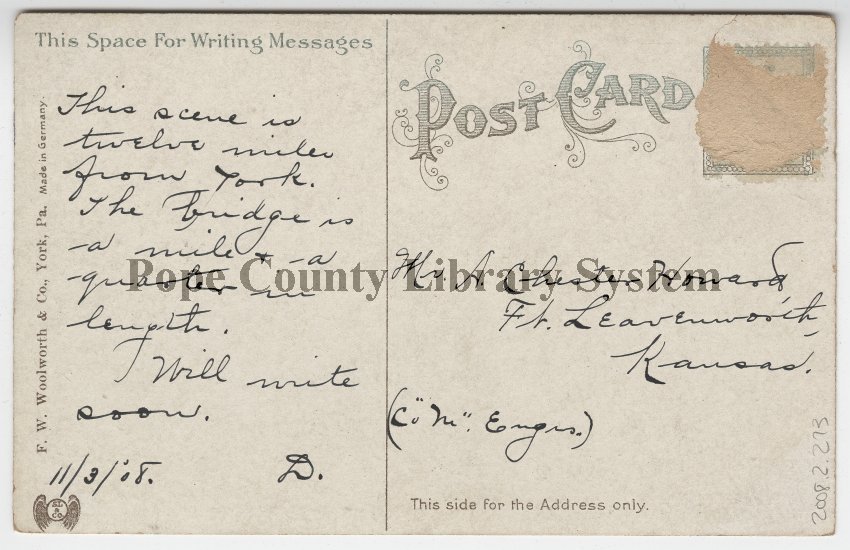 This Space For Writing Messages
POST CARD
This scene is
twelve miles
from York.
The bridge is
a mile & a
quarter in
length.
Will write
soon.
11/3/'08. D.
Mr A Chester Howard,
Ft. Leavenworth,
Kansas.
(Co "M". Engrs.)
This side for the Address only.
F. W. Woolworth & Co., York, Pa. Made in Germany.
2008.2.273
Pope County Library System